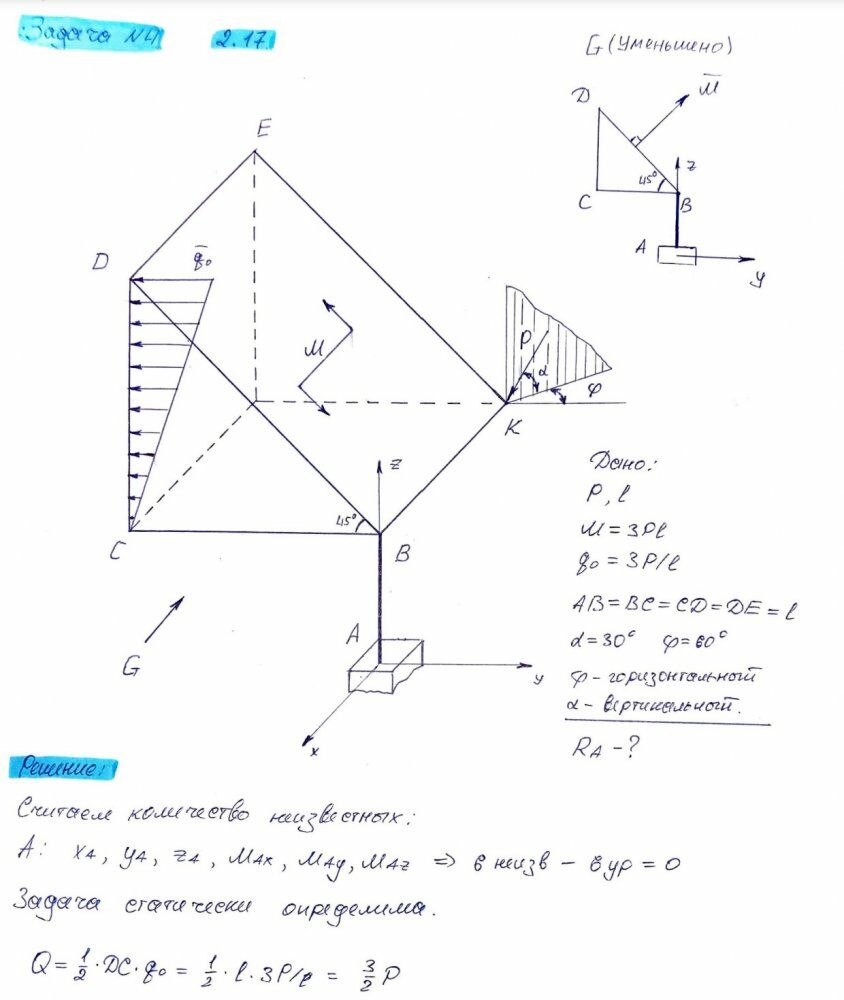 Задача №4 2.17.
G (уменьшено)
D
M̅
45°
z
C
B
A
y
E
D
q̅₀
M
P
α
φ
K
z
45°
C
B
A
G
y
x
Дано:
P, l
M = 3Pl
q₀ = 3P/l
AB = BC = CD = DE = l
α = 30° φ = 60°
φ - горизонтальный
α - вертикальный.
RA - ?
Решение:
Считаем количество неизвестных:
A: XA, YA, ZA, MAx, MAy, MAz => 6 неизв - 6 ур = 0
Задача статически определима.
Q = 1/2 · DC · q₀ = 1/2 · l · 3P/l = 3/2 P